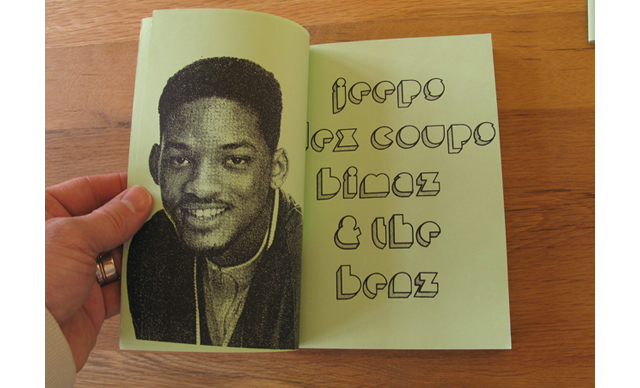 jeeps
lex coups
bimaz
& the
benz